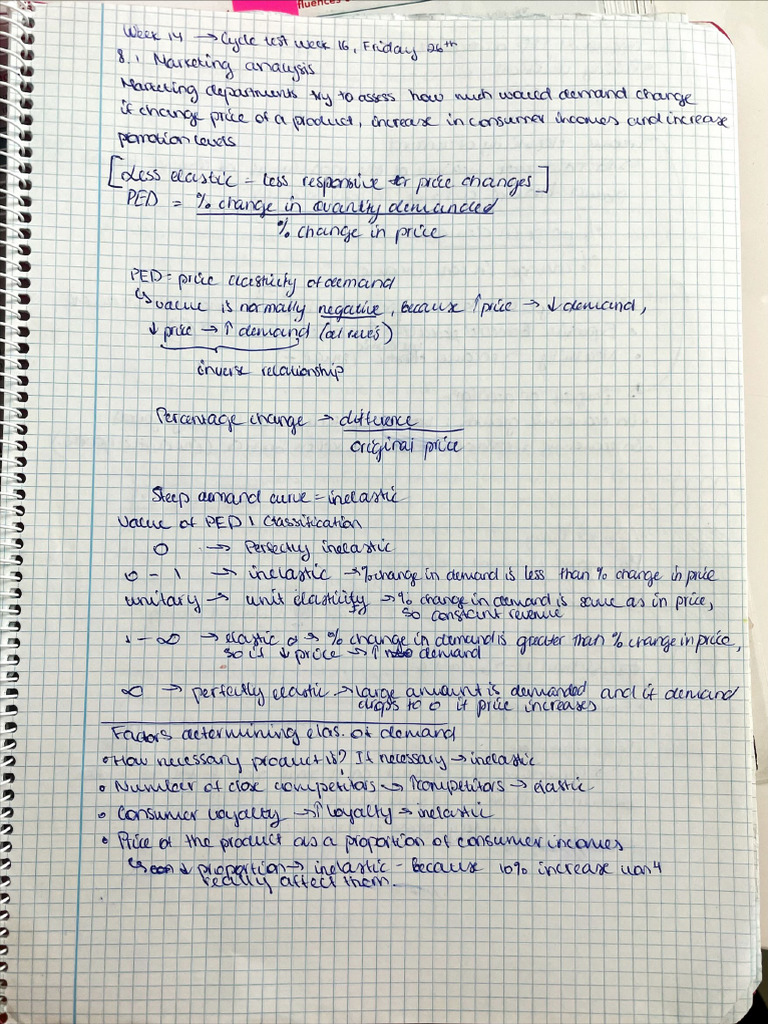 fluences
Week 14 → Cycle test week 16, Friday 26th
8.1 Marketing analysis
Marketing departments try to assess how much would demand change
if change price of a product, increase in consumer incomes and increase
promotion levels
[Less elastic = less responsive to price changes]
PED = % change in quantity demanded
% change in price
PED = price elasticity of demand
↳ value is normally negative, because ↑ price → ↓ demand,
↓ price → ↑ demand
inverse relationship
Percentage change → difference
original price
Steep demand curve = inelastic
Value of PED | Classification
0 → Perfectly inelastic
0 - 1 → inelastic → % change in demand is less than % change in price
unitary → unit elasticity → % change in demand is same as in price,
so constant revenue
1 - ∞ → elastic → % change in demand is greater than % change in price,
so if ↓ price → ↑ demand
∞ → perfectly elastic → large amount is demanded and if demand
drops to 0 if price increases
Factors determining elas. of demand
• How necessary product is? If necessary → inelastic
• Number of close competitors → ↑ competitors → elastic
• Consumer loyalty → ↑ loyalty → inelastic
• Price of the product as a proportion of consumer incomes
↳ ↓ proportion → inelastic - because 10% increase won't
really affect them.